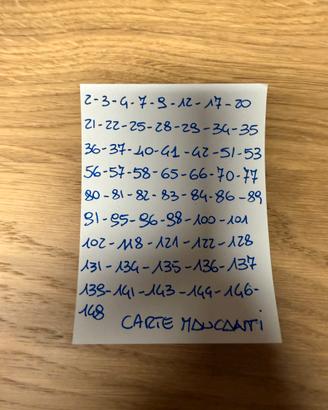 2-3-4-7-9-12-17-20
21-22-25-28-29-34-35
36-37-40-41-42-51-53
56-57-58-65-66-70-77
80-81-82-83-84-86-89
91-95-96-98-100-101
102-118-121-122-128
131-134-135-136-137
139-141-143-144-146-
148 CARTE MANCANTI